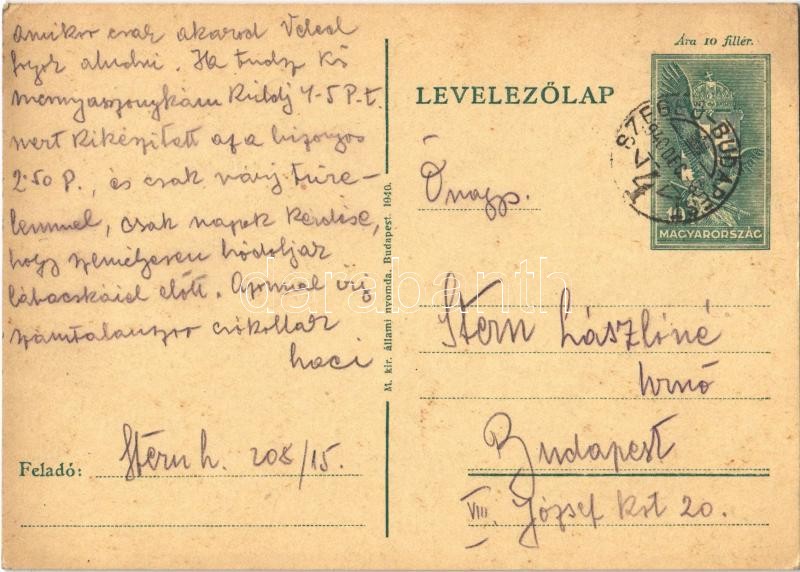 amikor csak akarod Veled
fogok aludni. Ha tudsz kis
mennyasszonykám küldj 4-5 P-t.
mert kikészített az a bizonyos
2.50 P., és csak várj türe-
lemmel, csak napok kérdése,
hogy személyesen hódoljak
lábacskáid előtt. Addig
számtalanszor csókollak
Laci
Feladó: Stern L. 208/15.
M. kir. állami nyomda. Budapest. 1940.
Ára 10 fillér.
LEVELEZŐLAP
SZEGED-BUDAPEST
10
MAGYARORSZÁG
Önagys.
Stern Lászlóné
úrnő
Budapest
VIII. József krt 20.
darabanth